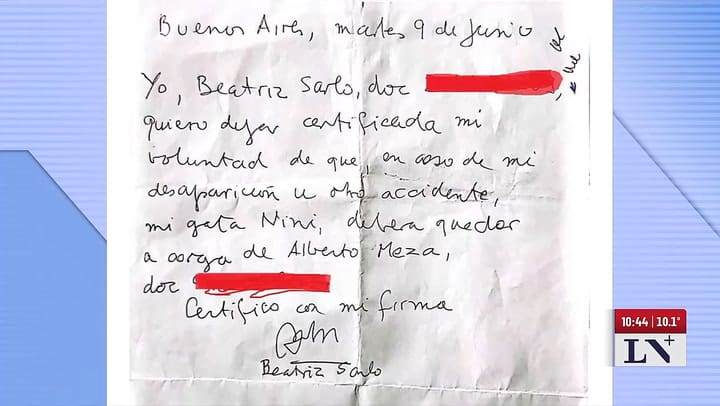 Buenos Aires, martes 9 de Junio
Yo, Beatriz Sarlo, doc
quiero dejar certificada mi
voluntad de que, en caso de mi
desaparición u otro accidente,
mi gata Nini, debera quedar
a cargo de Alberto Meza,
doc
Certifico con mi firma
Beatriz Sarlo
10:44 | 10.1°
LN+